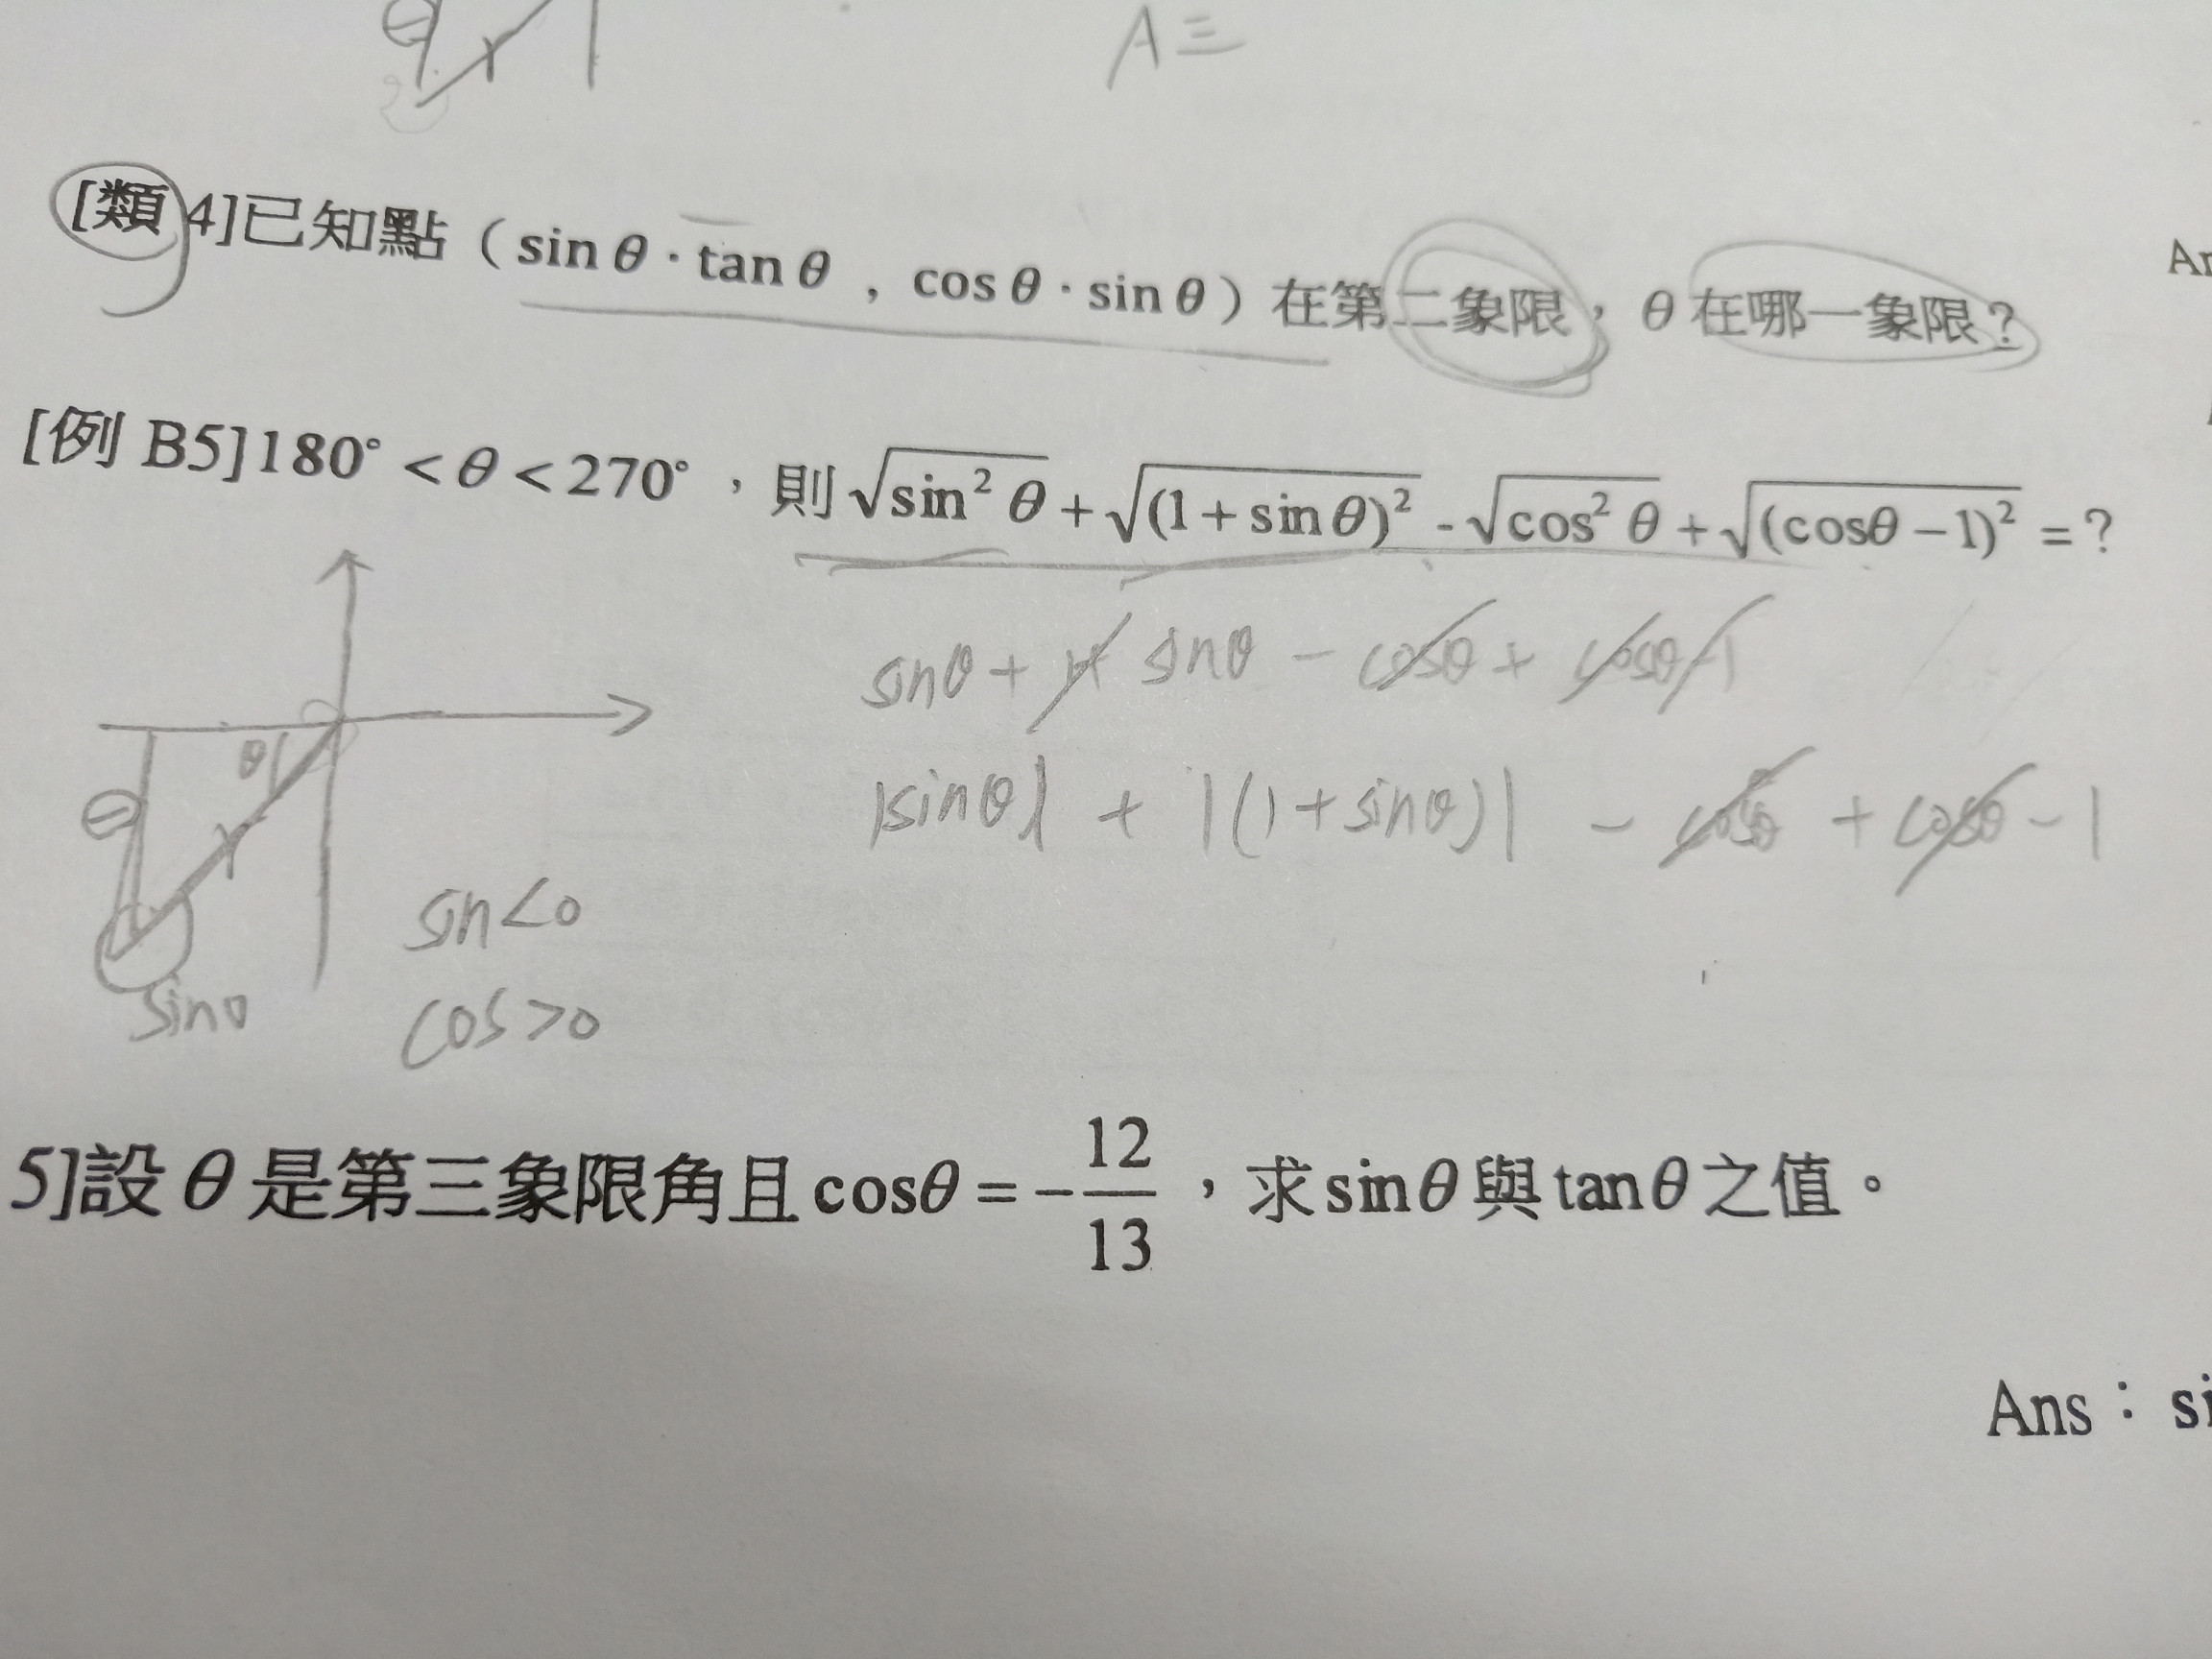 A 三
[類 4]已知點（sin θ · tan θ , cos θ · sin θ）在第二象限，θ 在哪一象限？
[例 B5]180° < θ < 270°，則 √sin² θ + √(1 + sin θ)² - √cos² θ + √(cosθ − 1)² = ?
sinθ + 1+ sinθ − cosθ + cosθ−1
θ
|sinθ| + |(1+sinθ)| − cosθ + cosθ − 1
sin<0
sinθ
cos>0
5]設 θ 是第三象限角且 cosθ = −12/13，求 sinθ 與 tanθ 之值。
Ans：si